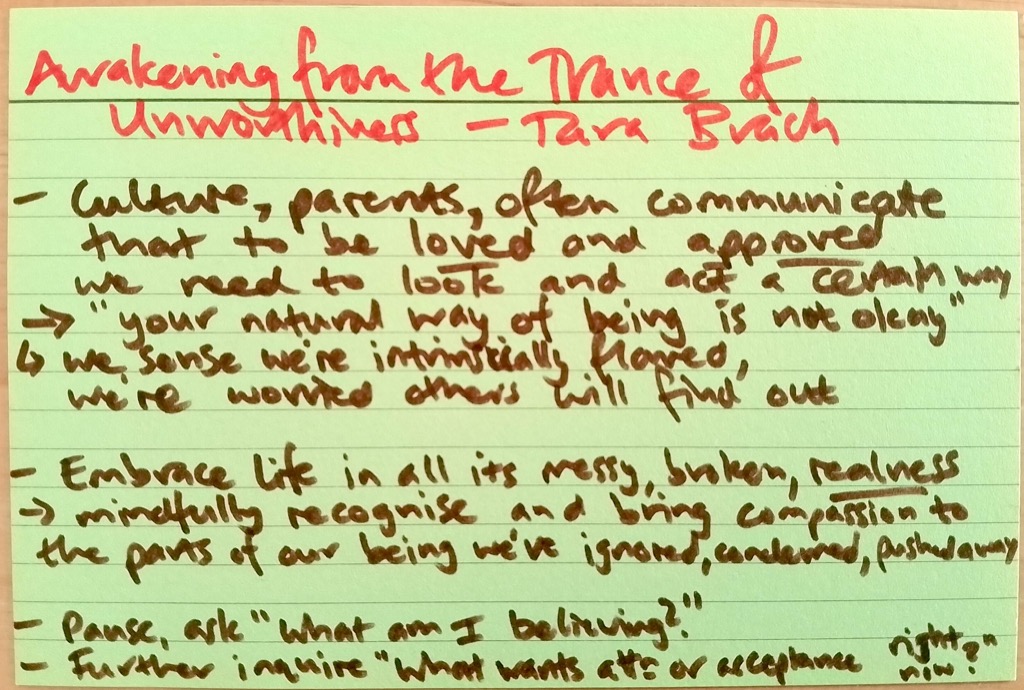 Awakening from the Trance of
Unworthiness - Tara Brach
- Culture, parents, often communicate
that to be loved and approved
we need to look and act a certain way
→ "your natural way of being is not okay"
↳ we sense we're intrinsically flawed,
we're worried others will find out
- Embrace life in all its messy, broken, realness
→ mindfully recognise and bring compassion to
the parts of our being we've ignored, condemned, pushed away
- Pause, ask "what am I believing?"
- Further inquire "what wants attn or acceptance right now?"